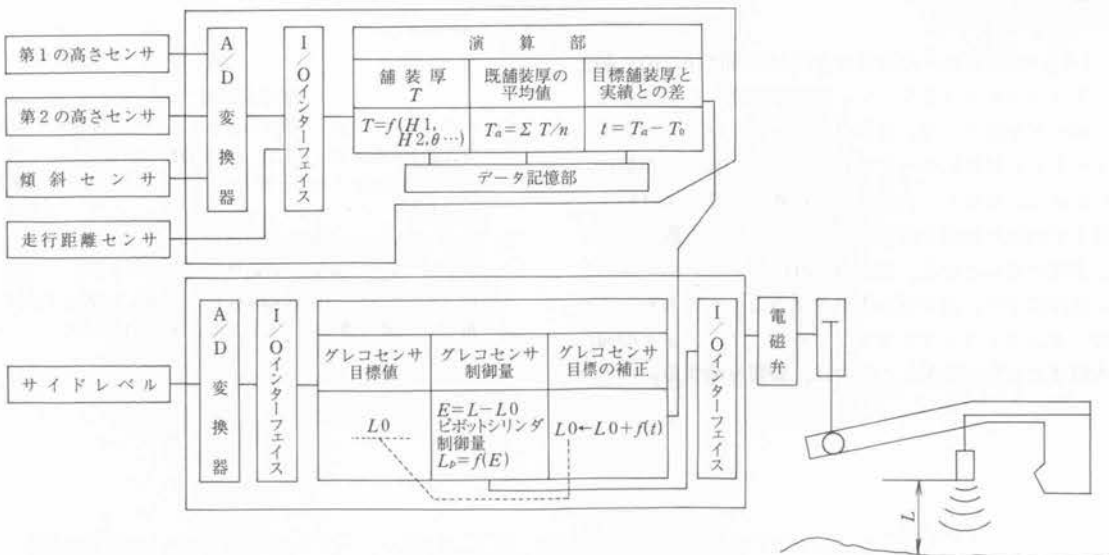 第1の高さセンサ
第2の高さセンサ
傾斜センサ
走行距離センサ
A/D変換器
I/Oインターフェイス
演算部
舗装厚
T
既舗装厚の
平均値
目標舗装厚と
実績との差
T=f(H1,
H2,θ…)
Ta=Σ T/n
t=Ta−T0
データ記憶部
サイドレベル
A/D変換器
I/Oインターフェイス
グレコセンサ
目標値
グレコセンサ
制御量
グレコセンサ
目標の補正
L0
E=L−L0
ピボットシリンダ
制御量
Lp=f(E)
L0←L0+f(t)
I/Oインターフェイス
電磁弁
L